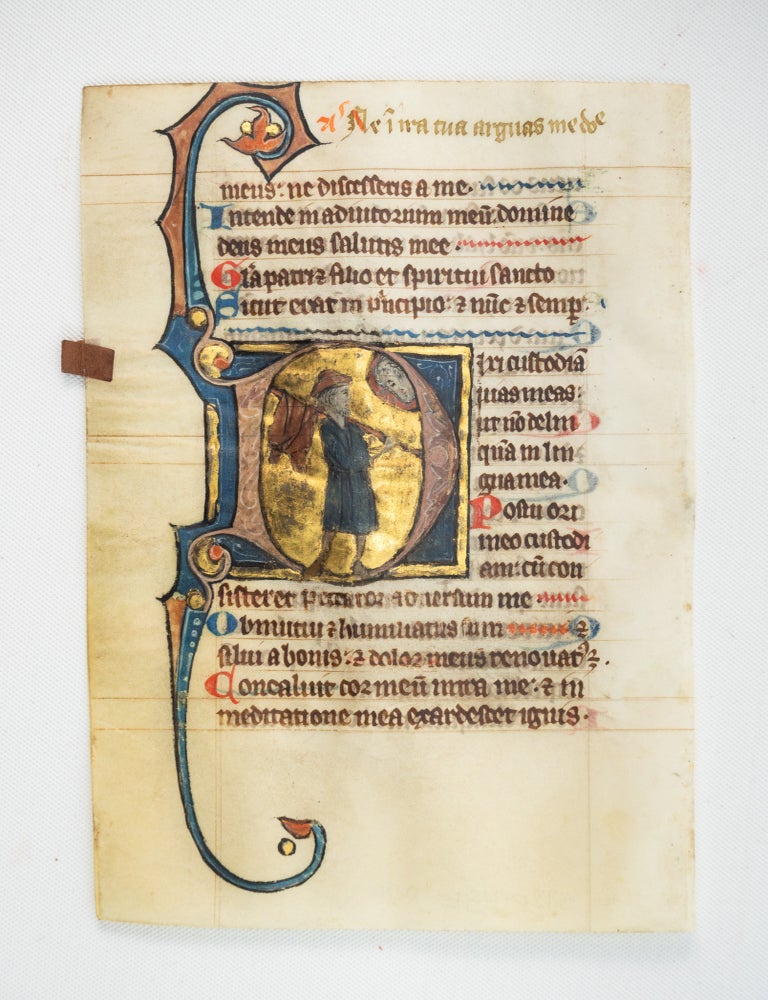 Ne ī ira tua arguas me dñe
meus: ne discesseris a me.
Intende in adiutorium meū. domine
deus meus salutis mee.
Glā patri ⁊ filio et spiritui sancto
Sicut erat in pͥncipio: ⁊ nūc ⁊ semp̲.
Dixi custodiā
uias meas:
ut nō delin
quā in lin
gua mea.
Posui ori
meo custodi
am: cū con
sisteret peccator aduersum me
Obmutui ⁊ humiliatus sum ⁊
silui a bonis: ⁊ dolor meus renouatꝰ ÷.
Concaluit cor meū intra me: ⁊ in
meditatione mea exardescet ignis.